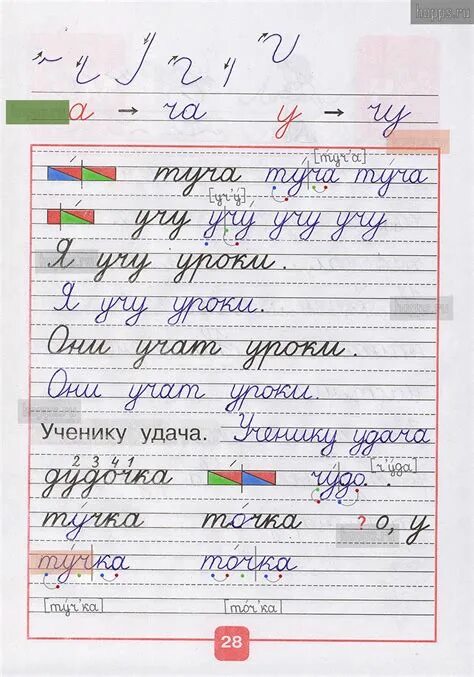 hopps.ru
а → ча у → чу
[туч'а]
туча ту́ча туча
[уч'у́]
учу учу́ учу учу
Я учу уроки.
Я учу уроки.
Они учат уроки.
Они учат уроки.
Ученику удача. Ученику удача
2 3 4 1
дудочка чу́до [ч'у́да]
ту́чка то́чка ? о, у
ту́чка то́чка
[ту́ч'ка] [то́ч'ка]
28